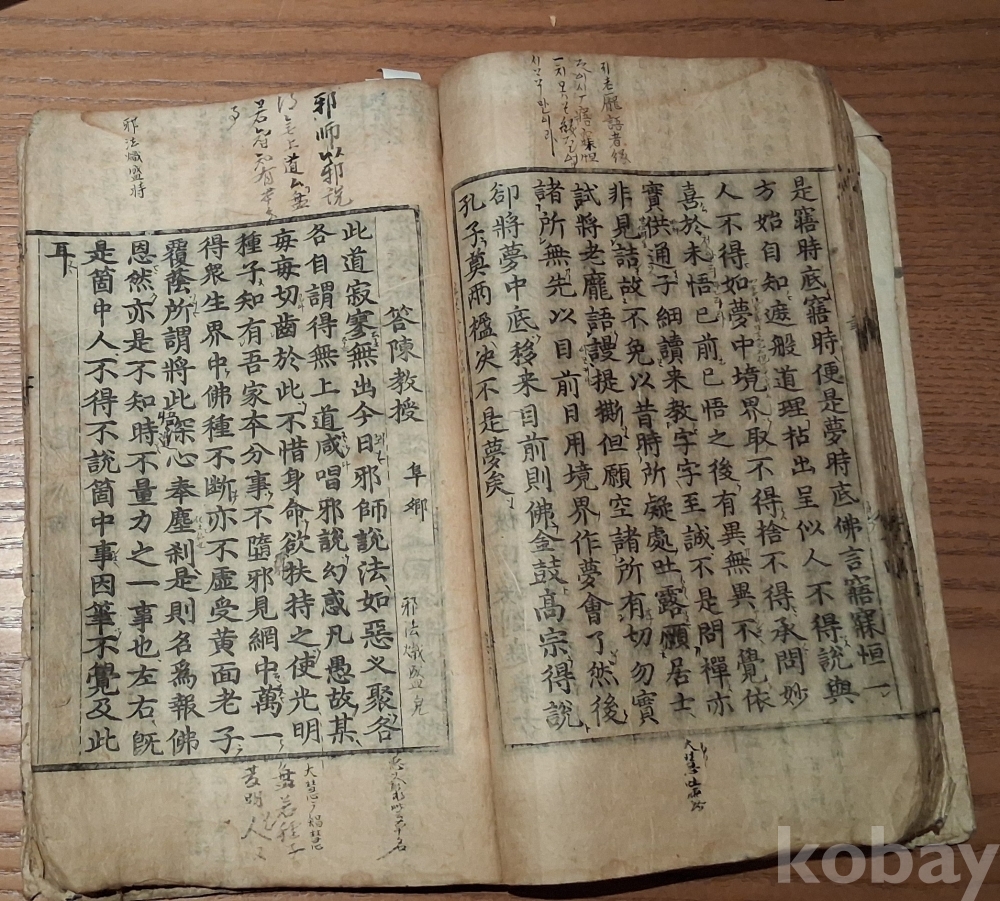 是寤時底寤時便是夢時底佛言寤寐恒一
方始自知遮般道理拈出呈似人不得說與
人不得如夢中境界取不得捨不得承問妙
喜於未悟已前已悟之後有異無異不覺依
實供通子細讀来教字字至誠不是問禪亦
非見詰故不免以昔時所疑處吐露願居士
試將老龐語謾提撕但願空諸所有切勿實
諸所無先以目前日用境界作夢會了然後
却將夢中底移来目前則佛金鼓高宗得說
孔子奠兩楹决不是夢矣
引老龐語者
大慧吐露
邪師邪說
無上道
邪法熾盛將
答陳教授 阜鄉
邪法熾盛
此道寂寥無出今日邪師說法如惡叉聚各
各自謂得無上道咸唱邪說幻惑凡愚故某
每每切齒於此不惜身命欲扶持之使光明
種子知有吾家本分事不隨邪見網中萬一
得衆生界中佛種不断亦不虛受黃面老子
覆蔭所謂將此深心奉塵刹是則名爲報佛
恩然亦是不知時不量力之一事也左右旣
是箇中人不得不說箇中事因筆不覺及此
耳
kobay